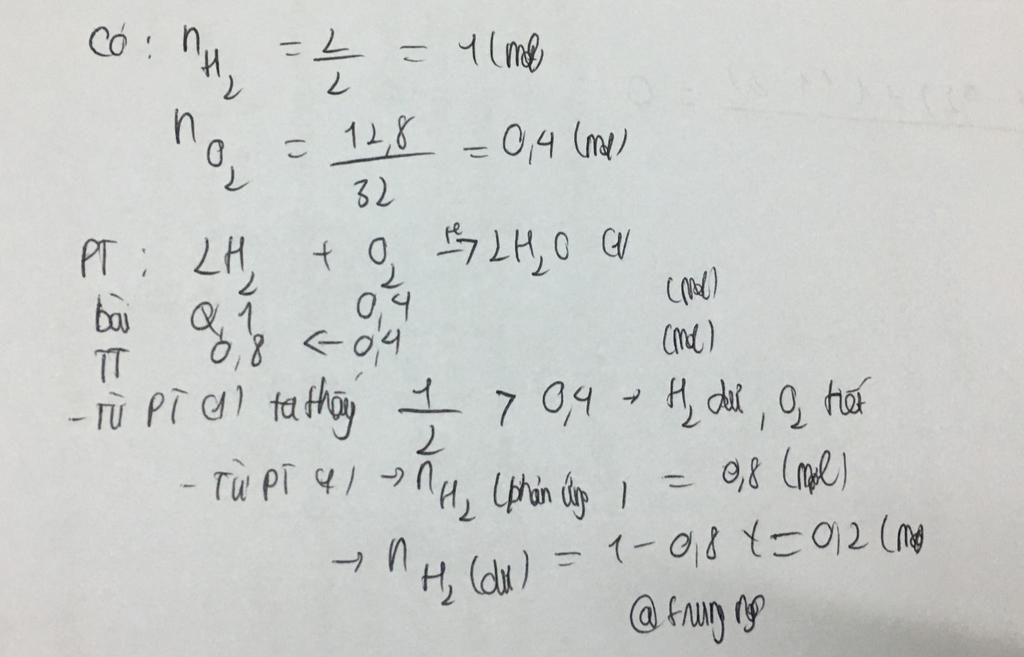 Có : nH2 = 2/2 = 1 (mol)
nO2 = 12,8/32 = 0,4 (mol)
PT : 2H2 + O2 → 2H2O (1)
bài 0,1 0,4 (mol)
TT 0,8 ← 0,4 (mol)
- Từ PT (1) ta thấy 1/2 > 0,4 → H2 dư, O2 hết
- Từ PT (1) → nH2 (phản ứng) = 0,8 (mol)
→ nH2 (dư) = 1 - 0,8 = 0,2 (mol
@trung